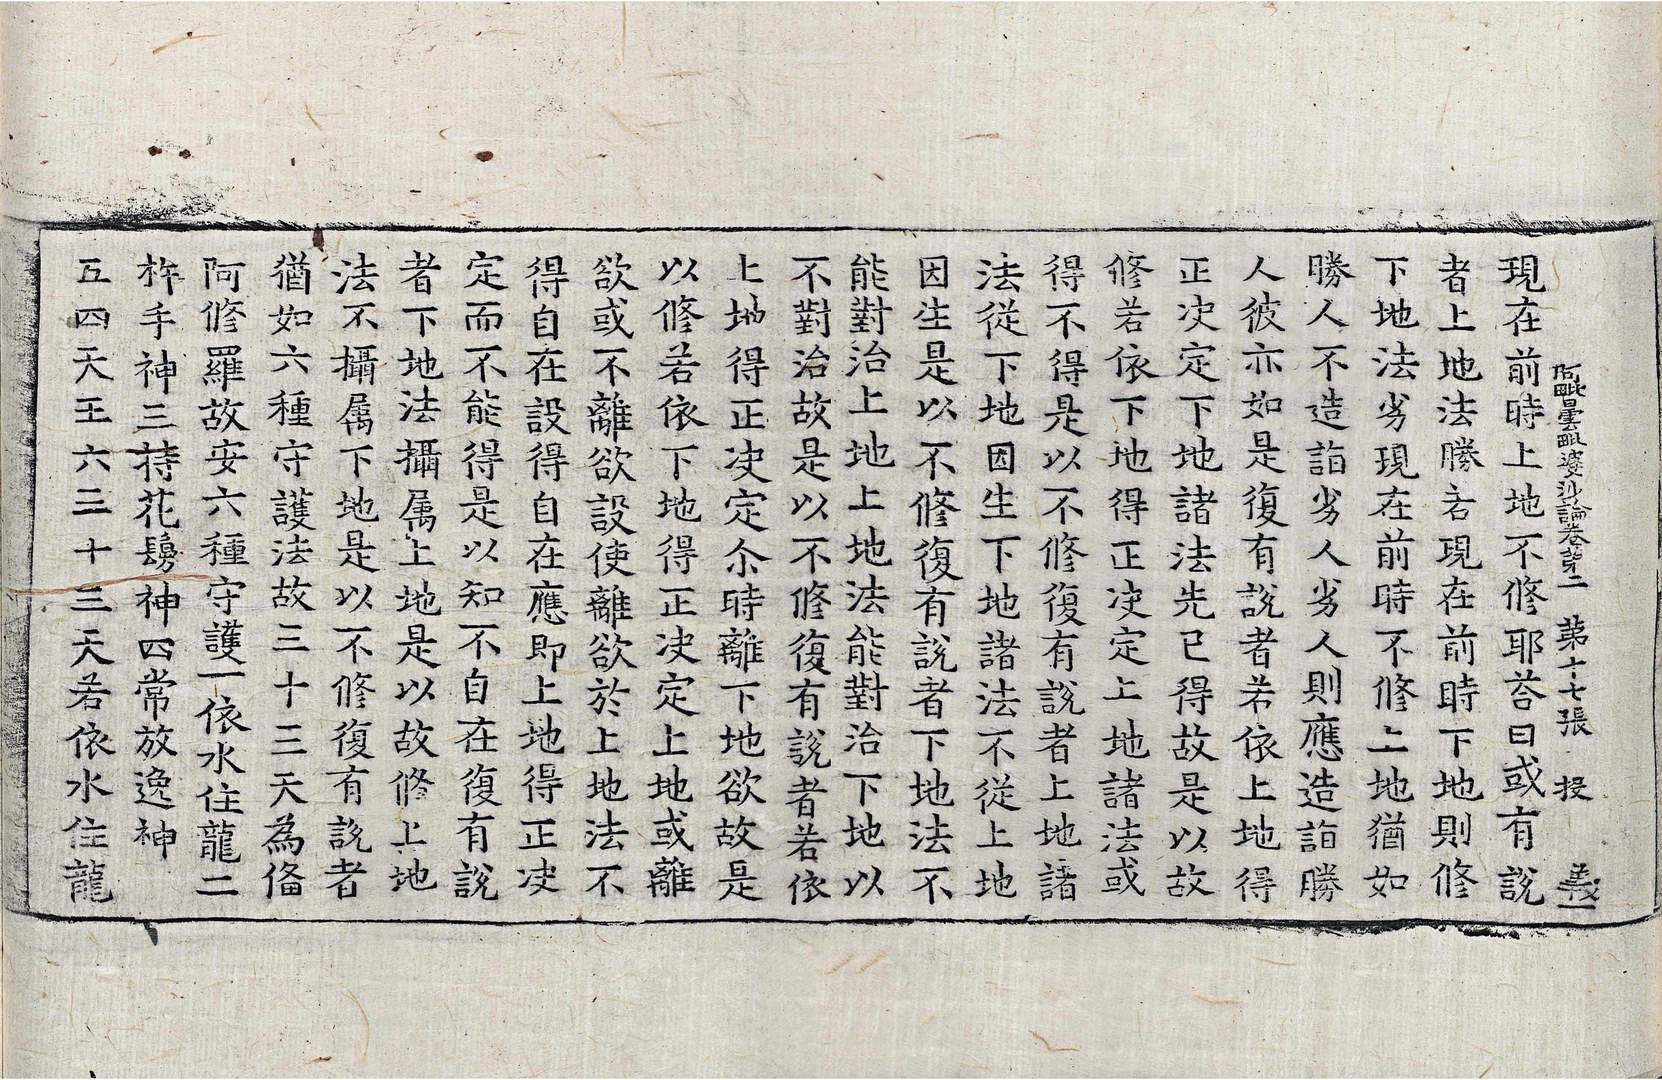 阿毗曇毗婆沙論卷第二　第十七張　投　義
現在前時上地不修耶荅曰或有說
者上地法勝若現在前時下地則修
下地法劣現在前時不修上地猶如
勝人不造詣劣人劣人則應造詣勝
人彼亦如是復有說者若依上地得
正决定下地諸法先已得故是以故
修若依下地得正决定上地諸法或
得不得是以不修復有說者上地諸
法從下地因生下地諸法不從上地
因生是以不修復有說者下地法不
能對治上地上地法能對治下地以
不對治故是以不修復有說者若依
上地得正决定尒時離下地欲故是
以修若依下地得正决定上地或離
欲或不離欲設使離欲於上地法不
得自在設得自在應即上地得正决
定而不能得是以知不自在復有說
者下地法攝属上地是以故修上地
法不攝属下地是以不修復有說者
猶如六種守護法故三十三天為俻
阿修羅故安六種守護一依水住龍二
杵手神三持花鬘神四常放逸神
五四天王六三十三天若依水住龍